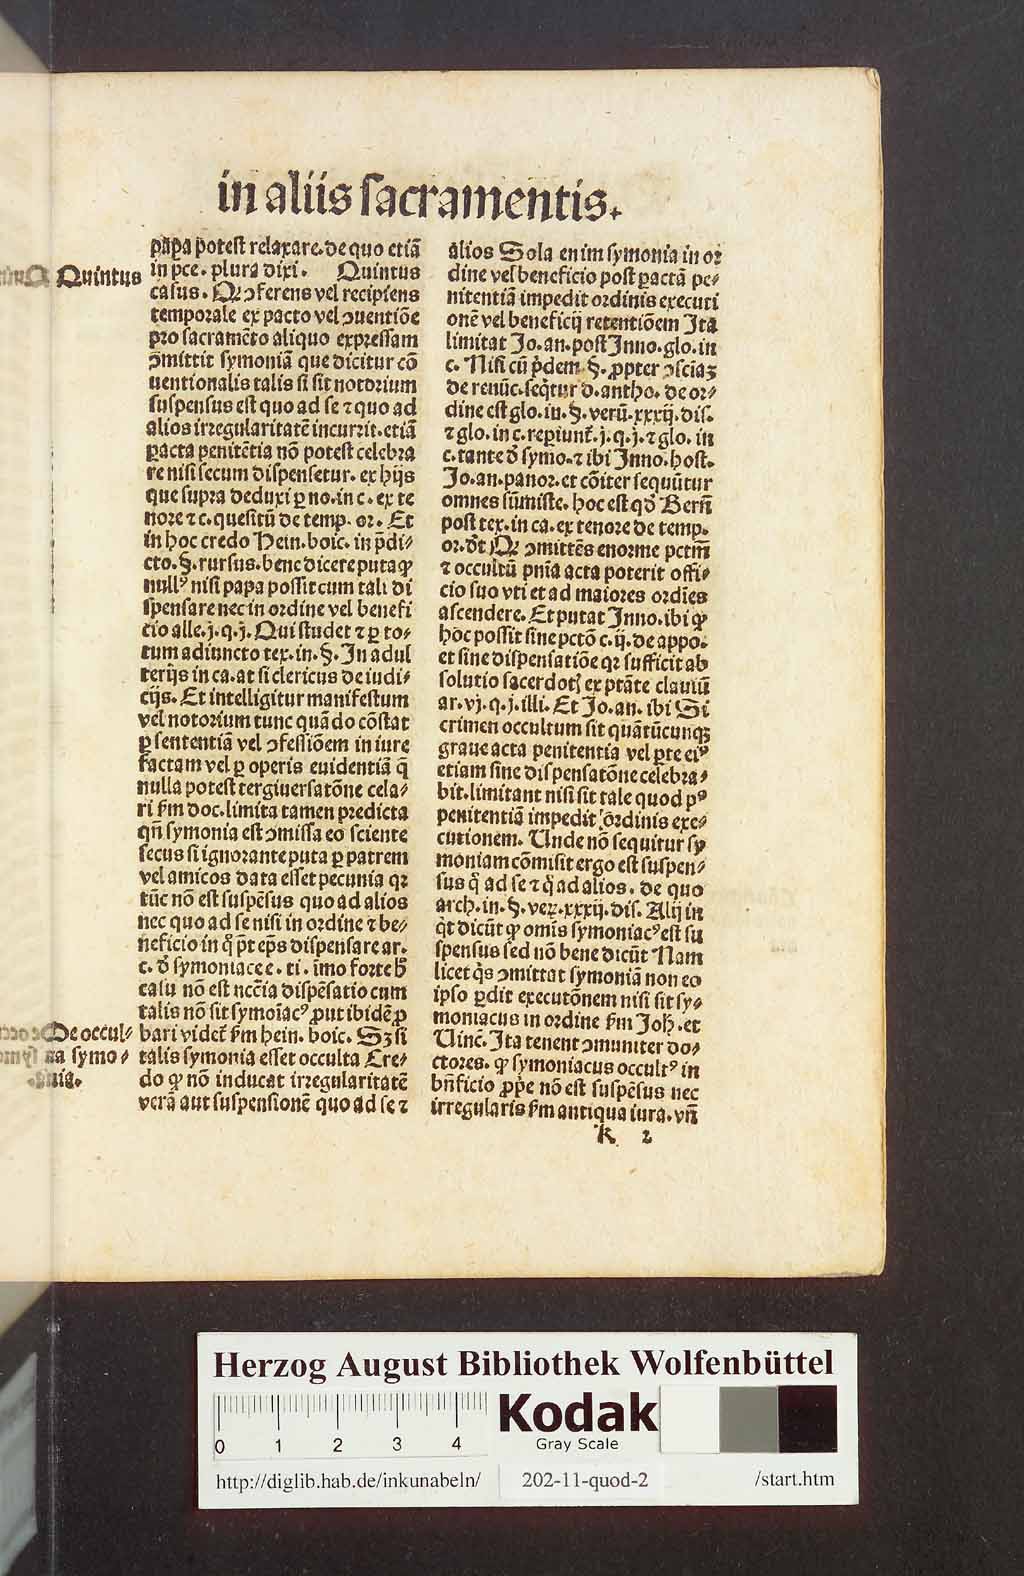 in aliis sacramentis.
papa potest relaxare. de quo etiã
in pce. plura dixi. Quintus
Quintus
casus. Q ɔferens vel recipiens
temporale ex pacto vel ɔuentiõe
pro sacramẽto aliquo expressam
ɔmittit symoniã que dicitur cõ
uentionalis talis si sit notorium
suspensus est quo ad se ⁊ quo ad
alios irregularitatẽ incurrit. etiã
ꝑacta penitẽtia nõ potest celebra
re nisi secum dispensetur. ex hijs
que supra deduxi ꝑ no. in c. ex te
nore ⁊ c. quesitũ de temp. or. Et
in hoc credo Hein. boic. in p̃di⸗
cto. §. rursus. bene dicere puta ꝙ
nullꝰ nisi papa possit cum tali di
spensare nec in ordine vel benefi
cio alle. j. q. j. Qui studet ⁊ ꝑ to⸗
tum adiuncto tex. in. §. In adul
terijs in ca. at si clericus de iudi⸗
cijs. Et intelligitur manifestum
vel notorium tunc quãdo cõstat
ꝑ sententiã vel ɔfessiõem in iure
factam vel ꝑ operis euidentiã q̃
nulla potest tergiuersatõne cela⸗
ri ẜm doc. limita tamen predicta
qñ symonia est ɔmissa eo sciente
secus si ignorante puta ꝑ patrem
vel amicos data esset pecunia qꝛ
tũc nõ est suspẽsus quo ad alios
nec quo ad se nisi in ordine ⁊ be⸗
neficio in q̃ p̃t ep̃s dispensare ar.
c. ð symoniace e. ti. ĩmo forte ħ
casu nõ est nccẽia dispẽsatio cum
talis nõ sit symoĩacꝰ ꝓut ibidẽ ꝓ
bari videt̃ ẜm hein. boic. Sꝫ si
De occul⸗
talis symonia esset occulta Cre⸗
ta symo⸗
do ꝙ nõ inducat irregularitatẽ
nia.
verã aut suspensionẽ quo ad se ⁊
alios Sola enim symonia in or
dine vel beneficio post ꝑactã pe⸗
nitentiã impedit ordinis executi
onẽ vel beneficij retentiõem Ita
limitat Jo. an. post Inno. glo. in
c. Nisi cũ p̃dem. §. ꝓpter ɔsciaꝫ
de renũc. seq̃tur d. antho. de or⸗
dine est glo. in. §. verũ. xxxij. dis.
⁊ glo. in c. reꝑiunt̃. j. q. j. ⁊ glo. in
c. tante ð symo. ⁊ ibi Inno. host.
Jo. an. panor. et cõiter sequũtur
omnes sũmiste. hoc est qð Berñ
post tex. in ca. ex tenore de temp.
or. ðt Q ɔmittẽs enorme pctm̃
⁊ occultũ pñia acta poterit offi⸗
cio suo vti et ad maiores ordĩes
ascendere. Et putat Inno. ibi ꝙ
hoc possit sine pctõ c. ij. de appo.
et sine dispensatiõe qꝛ sufficit ab
solutio sacerdotꝭ ex ꝑtãte clauiũ
ar. vj. q. j. illi. Et Jo. an. ibi Si
crimen occultum sit quãtũcunqꝫ
graue acta penitentia vel ꝑte eiꝰ
etiam sine dispensatõne celebra⸗
bit. limitant nisi sit tale quod pꝰ
penitentiã impedit ordinis exe⸗
cutionem. Unde nõ sequitur sy
moniam cõmisit ergo est suspen⸗
sus q̃ ad se ⁊ q̃ ad alios. de quo
arch. in. §. veꝝ. xxxij. dis. Alij in
q̃t dicũt ꝙ omĩs symoniacꝰ est su
spensus sed nõ bene dicũt Nam
licet q̃s ɔmittat symoniã non eo
ipso ꝑdit executõnem nisi sit sy⸗
moniacus in ordine ẜm Joh. et
Vinc̃. Ita tenent ɔmuniter do⸗
ctores. ꝙ symoniacus occultꝰ in
bñficio ꝓpͥe nõ est suspẽsus nec
irregularis ẜm antiqua iura. vñ
k 2
Herzog August Bibliothek Wolfenbüttel
0 1 2 3 4
Kodak
Gray Scale
http://diglib.hab.de/inkunabeln/ 202-11-quod-2 /start.htm